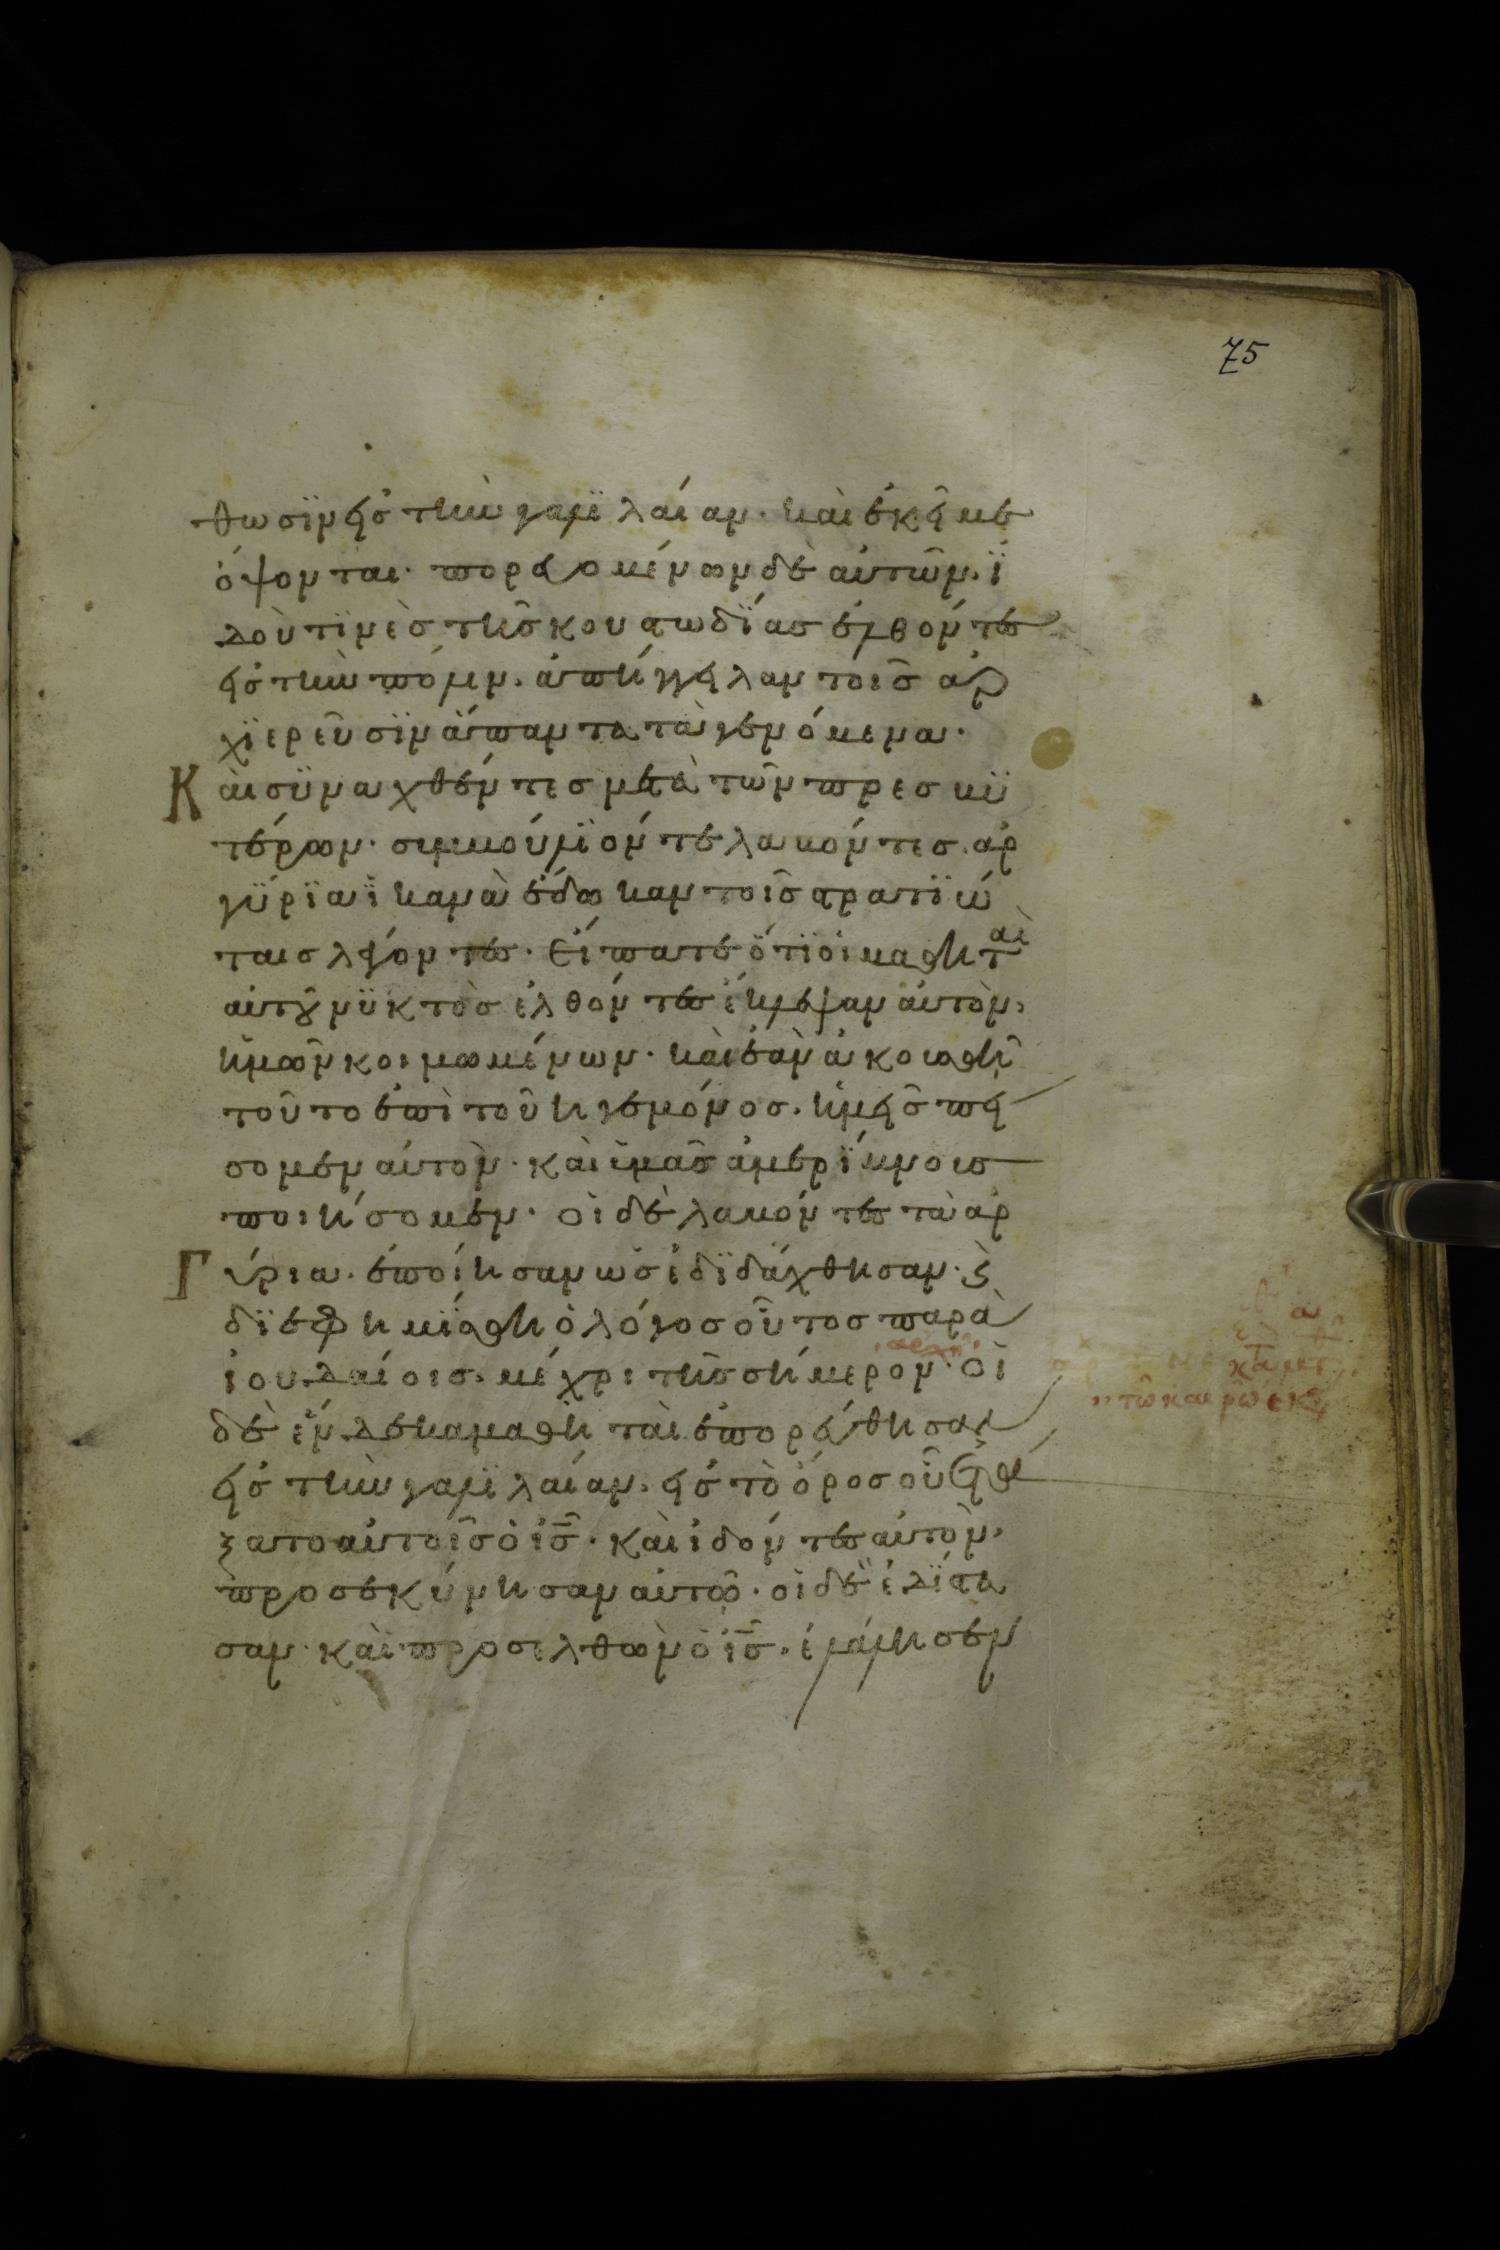 75
θωσϊν εἰσ τὴν γαλϊλαίαν· καὶ ἐκεῖ με
ὄψονται· πορευομένων δὲ αὐτῶν, ἰ
δοὺ τϊνὲσ τῆσ κουστωδϊασ ἐλθόντεσ
εἰσ τὴν πόλιν, ἀπήγγειλαν τοῖσ ἀρ
χϊερεῦσϊν ἅπαντα τὰ γενόμενα·
Καὶ συναχθέντεσ μετὰ τῶν πρεσβϋ
τέρων· συμβούλϊόν τε λαβόντεσ, ἀρ
γύρϊα ἱκανὰ ἔδωκαν τοῖσ στρατϊώ
ταισ λέγοντεσ· Εἴπατε ὅτϊ οἱ μαθηταὶ
αὐτοῦ νϋκτὸσ ἐλθόντεσ ἔκλεψαν αὐτὸν,
ἡμῶν κοιμωμένων· καὶ ἐὰν ἀκουσθῆ
τοῦτο ἐπὶ τοῦ ἡγεμόνοσ, ἡμεῖσ πεί
σομεν αὐτὸν· καὶ ὑμᾶσ ἀμερίμνουσ
ποιήσομεν· οἱ δὲ λαβόντεσ τὰ ἀρ
Γύρια, ἐποίησαν ὡσ ἐδϊδάχθησαν· καὶ
δϊεφημίσθη ὁ λόγοσ οὗτοσ παρὰ
ἰουδαίοισ, μέχρι τῆσ σήμερον· οἱ
δὲ ἕνδεκα μαθηταὶ ἐπορεύθησαν
εἰσ τὴν γαλϊλαίαν, εἰσ τὸ ὄροσ οὗ ἐτά
ξατο αὐτοῖσ ὁ ἰσ· καὶ ἰδόντεσ αὐτὸν,
προσεκύνησαν αὐτῶ· οἱ δὲ ἐδϊστα
σαν· καὶ προσελθὼν ὁ ἰσ, ἐλάλησεν
τῶ καιρῶ ἐκεί